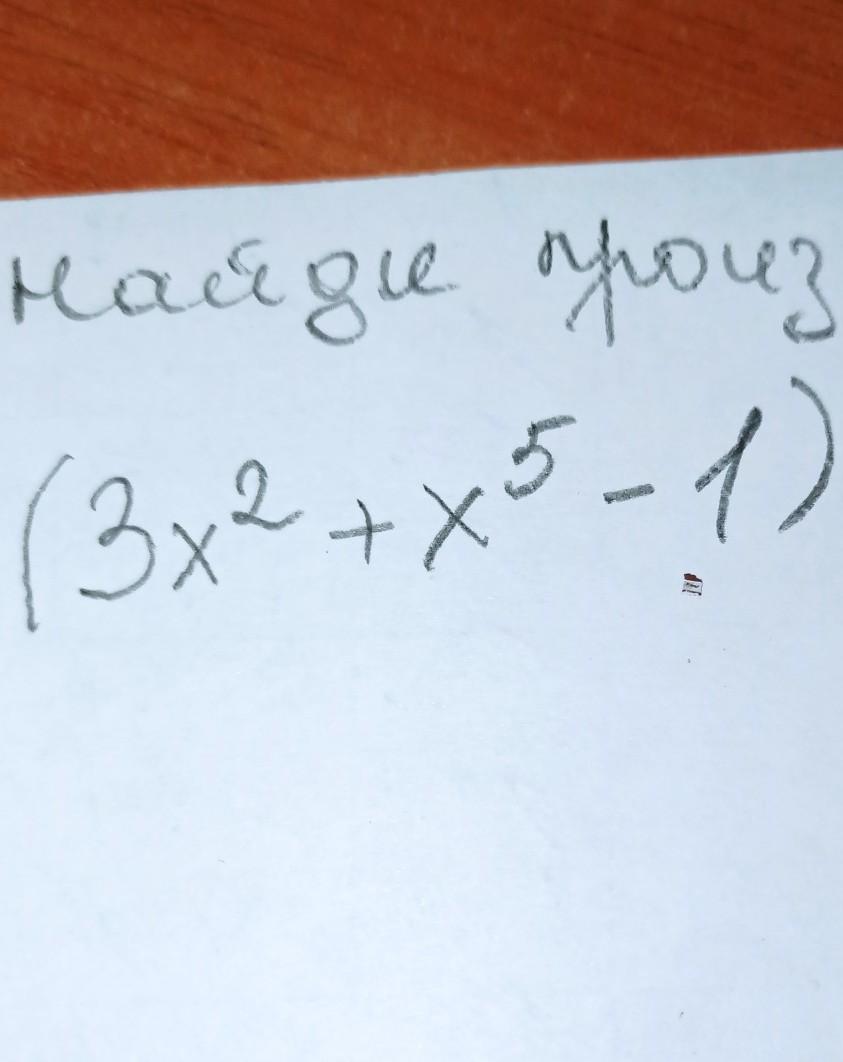 найди произ
(3x² + x⁵ - 1)